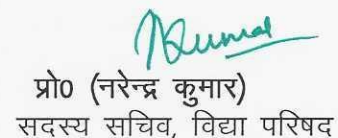 NKumar
प्रो० (नरेन्द्र कुमार)
सदस्य सचिव, विद्या परिषद